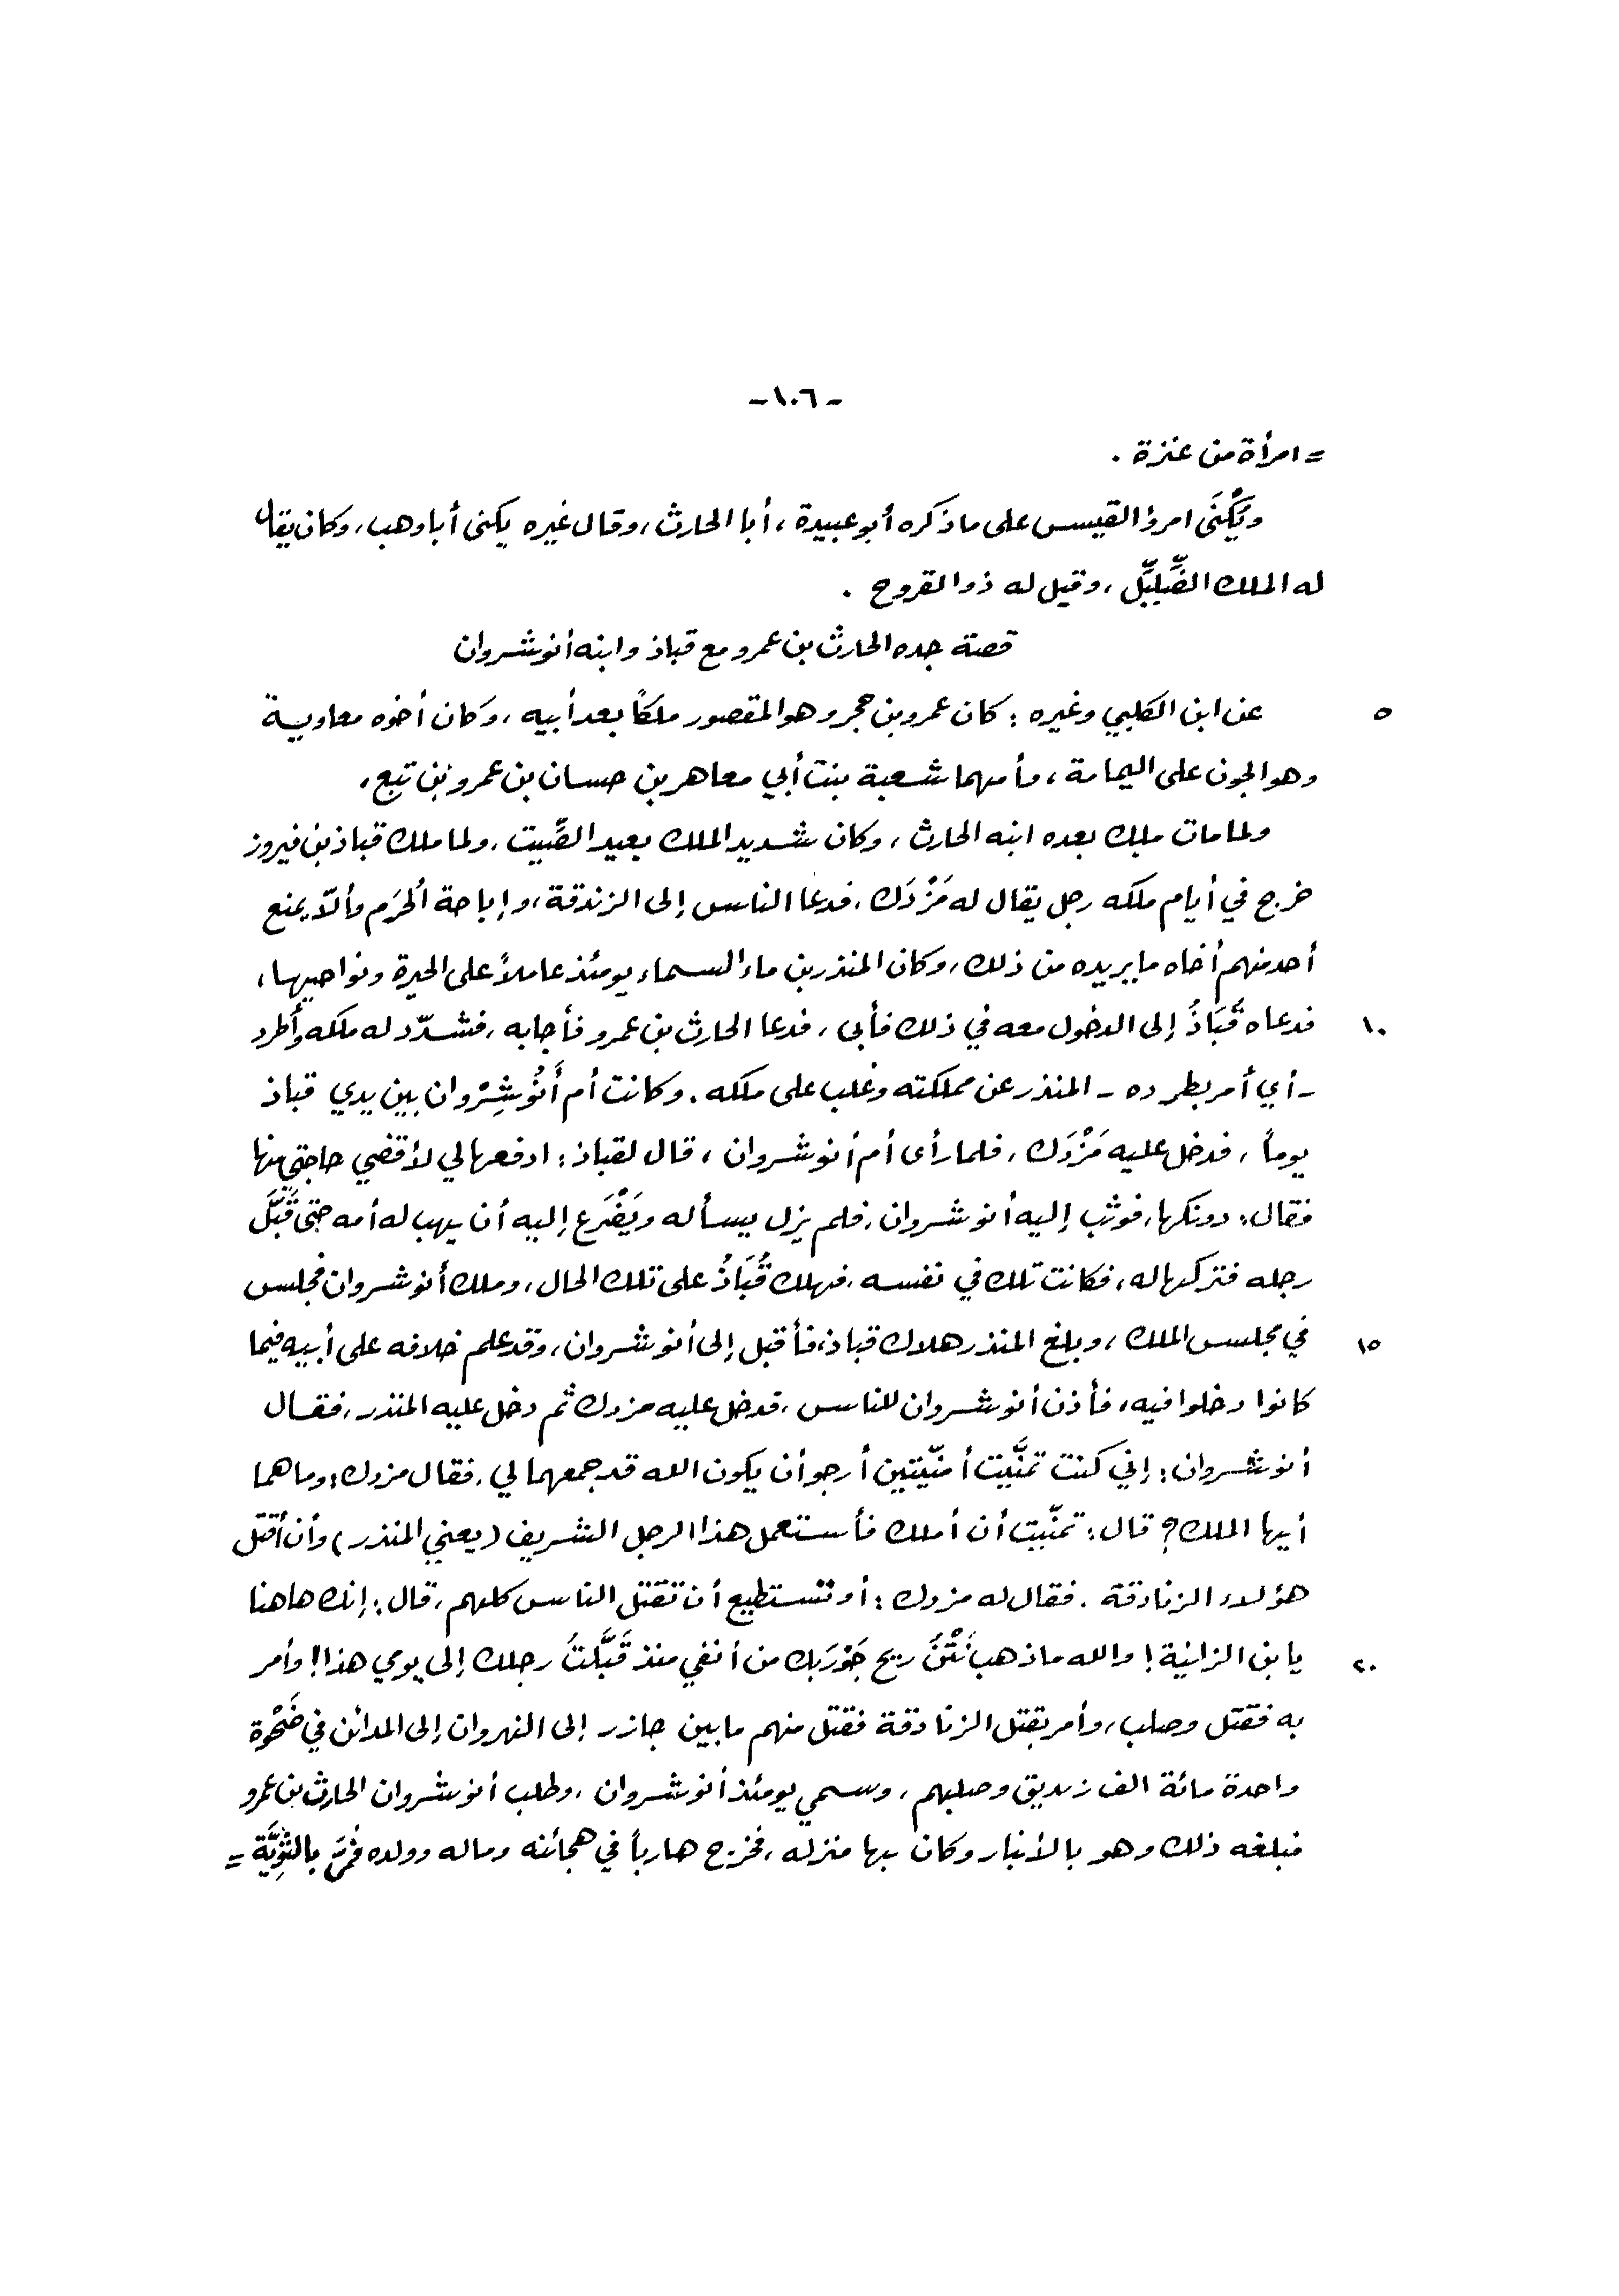 - ١٠٦ -
= امرأة من عنزة .
ويُكْنَى امرؤ القيس على ما ذكره أبو عبيدة ، أبا الحارث ، وقال غيره يكنى أبا وهب ، وكان يقال
له الملك الضِّلِيِّل ، وقيل له ذو القروح .
قصة جده الحارث بن عمرو مع قباذ وابنه أنوشروان
٥ عن ابن الكلبي وغيره : كان عمرو بن حجر وهو المقصور ملكاً بعد أبيه ، وكان أخوه معاوية
وهو الجون على اليمامة ، وأمهما شعبة بنت أبي معاهر بن حسان بن عمرو بن تبع ،
ولما مات ملك بعده ابنه الحارث ، وكان شديد الملك بعيد الصِّيت ، ولما ملك قباذ بن فيروز
خرج في أيام ملكه رجل يقال له مَزْدَك ، فدعا الناس إلى الزندقة ، وإباحة الحُرَم وألاّ يمنع
أحد منهم أخاه ما يريده من ذلك ، وكان المنذر بن ماء السماء يومئذ عاملاً على الحيرة ونواحيها ،
١٠ فدعاه قُبَاذُ إلى الدخول معه في ذلك فأبى ، فدعا الحارث بن عمرو فأجابه ، فشدّد له ملكه وأطرد
- أي أمر بطرده - المنذر عن مملكته وغلب على ملكه . وكانت أم أَنُوشِرْوان بين يدي قباذ
يوماً ، فدخل عليه مَزْدَك ، فلما رأى أم أنوشروان ، قال لقباذ : ادفعها لي لأقضي حاجتي منها
فقال : دونكها ، فوثب إليه أنوشروان ، فلم يزل يسأله ويَضْرَع إليه أن يهب له أمه حتى قَبَّلَ
رجله فتركها له ، فكانت تلك في نفسه ، فهلك قُبَاذُ على تلك الحال ، وملك أنوشروان فجلس
١٥ في مجلس الملك ، وبلغ المنذر هلاك قباذ ، فأقبل إلى أنوشروان ، وقد علم خلافه على أبيه فيما
كانوا دخلوا فيه ، فأذن أنوشروان للناس ، فدخل عليه مزدك ثم دخل عليه المنذر ، فقال
أنوشروان : إني كنت تمنَّيت أمنيّتين أرجو أن يكون الله قد جمعهما لي . فقال مزدك : وما هما
أيها الملك ؟ قال : تمنّيت أن أملك فأستعمل هذا الرجل الشريف ( يعني المنذر ) وأن أقتل
هؤلاء الزنادقة . فقال له مزدك : أو تستطيع أن تقتل الناس كلهم ، قال : إنك هاهنا
٢٠ يابن الزانية ! والله ما ذهب نَتْنُ ريح جَوْرَبك من أنفي منذ قَبَّلتُ رجلك إلى يومي هذا ! وأمر
به فقتل وصلب ، وأمر بقتل الزنادقة فقتل منهم ما بين جازر إلى النهروان إلى المدائن في ضَحْوة
واحدة مائة الف زنديق وصلبهم ، وسمي يومئذ أنوشروان ، وطلب أنوشروان الحارث بن عمرو
فبلغه ذلك وهو بالأنبار وكان بها منزله ، فخرج هارباً في هجائنه وماله وولده فمرَّ بالثَّوِيَّة =